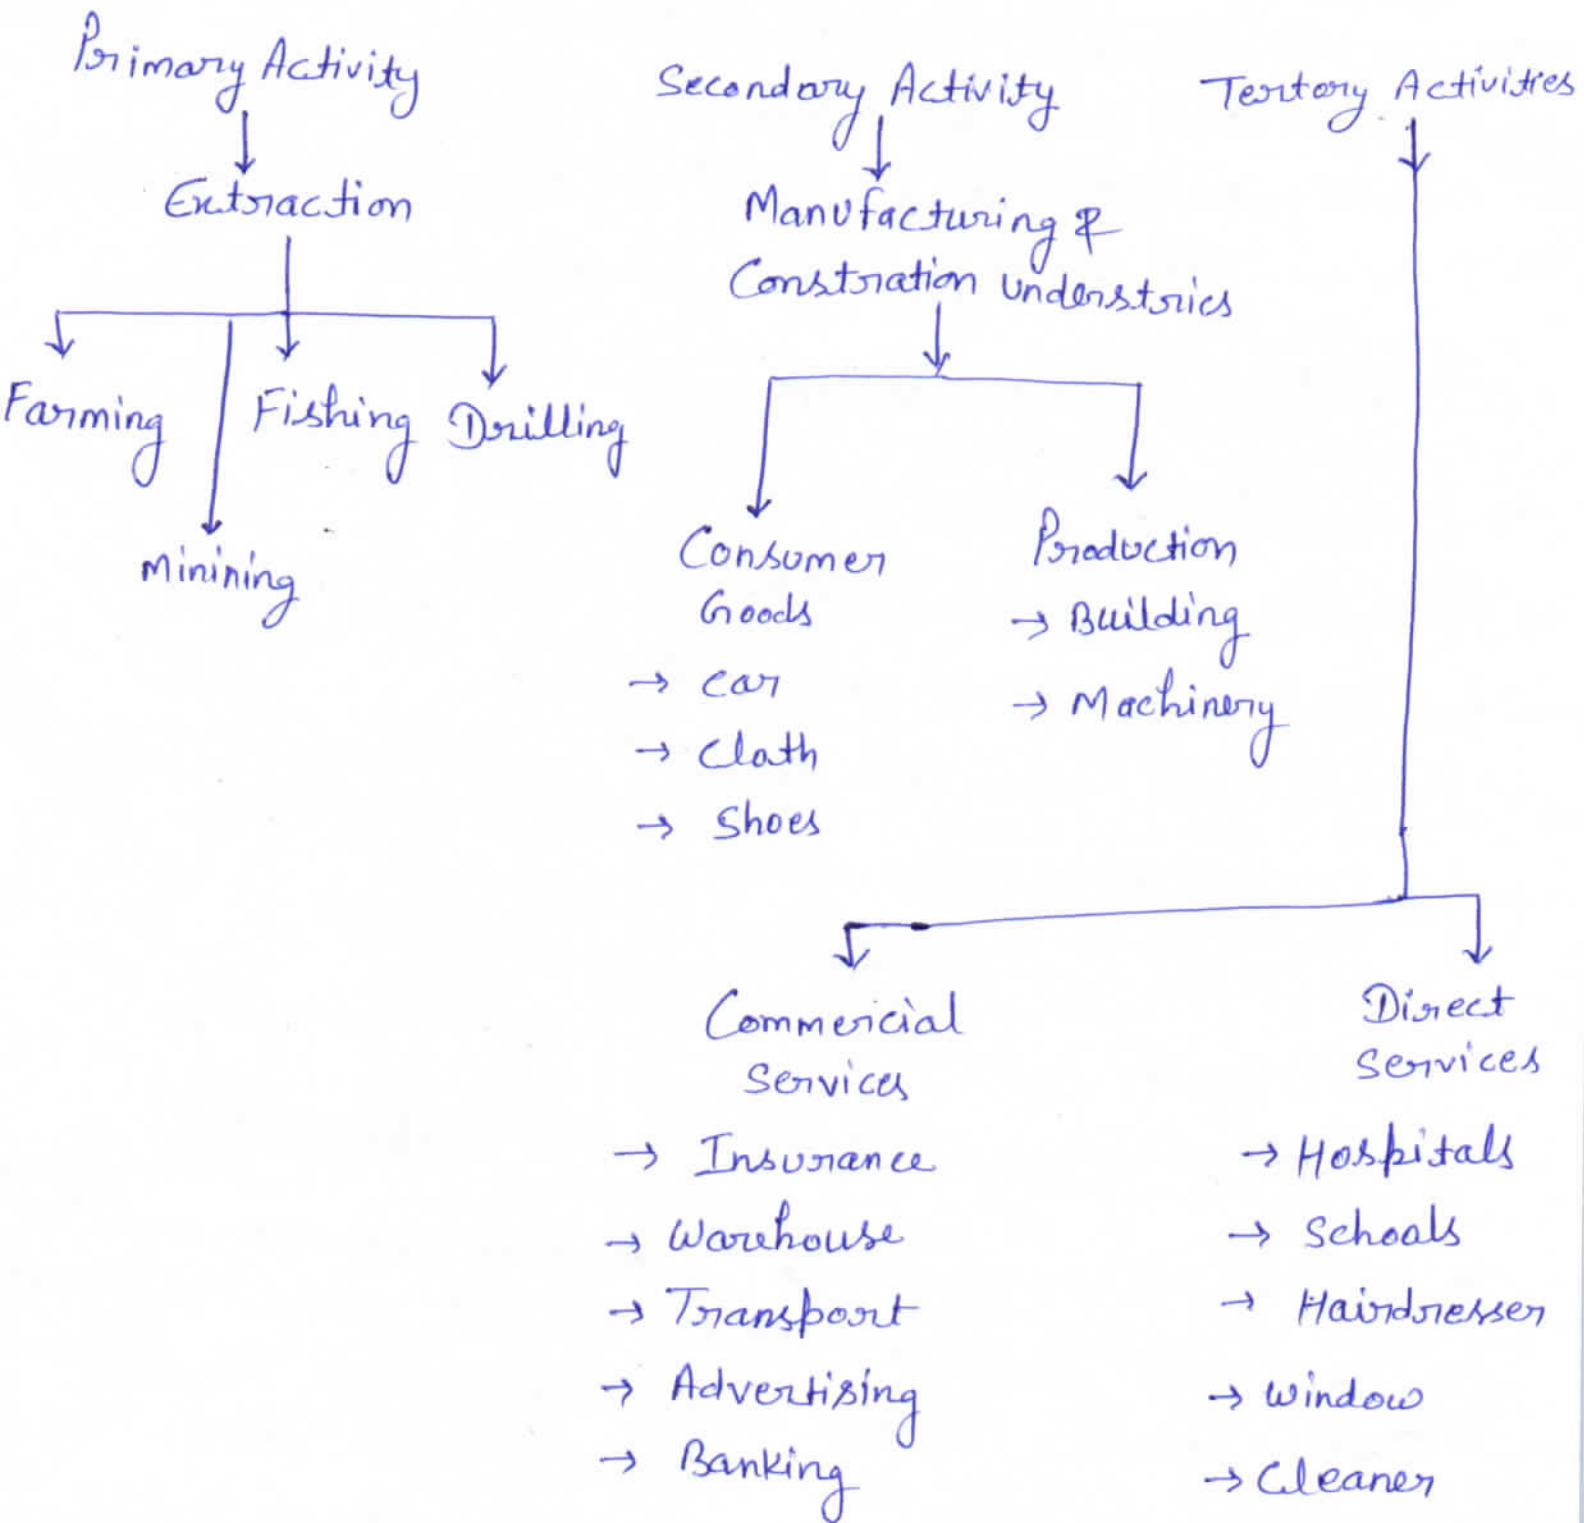 Primary Activity
Extraction
Farming
Fishing
Drilling
Minining
Secondary Activity
Manufacturing &
Constration understries
Consumer
Goods
→ Car
→ Cloth
→ Shoes
Production
→ Building
→ Machinery
Tertory Activities
Commericial
Services
→ Insurance
→ Warehouse
→ Transport
→ Advertising
→ Banking
Direct
Services
→ Hospitals
→ Schools
→ Hairdresser
→ Window
→ Cleaner